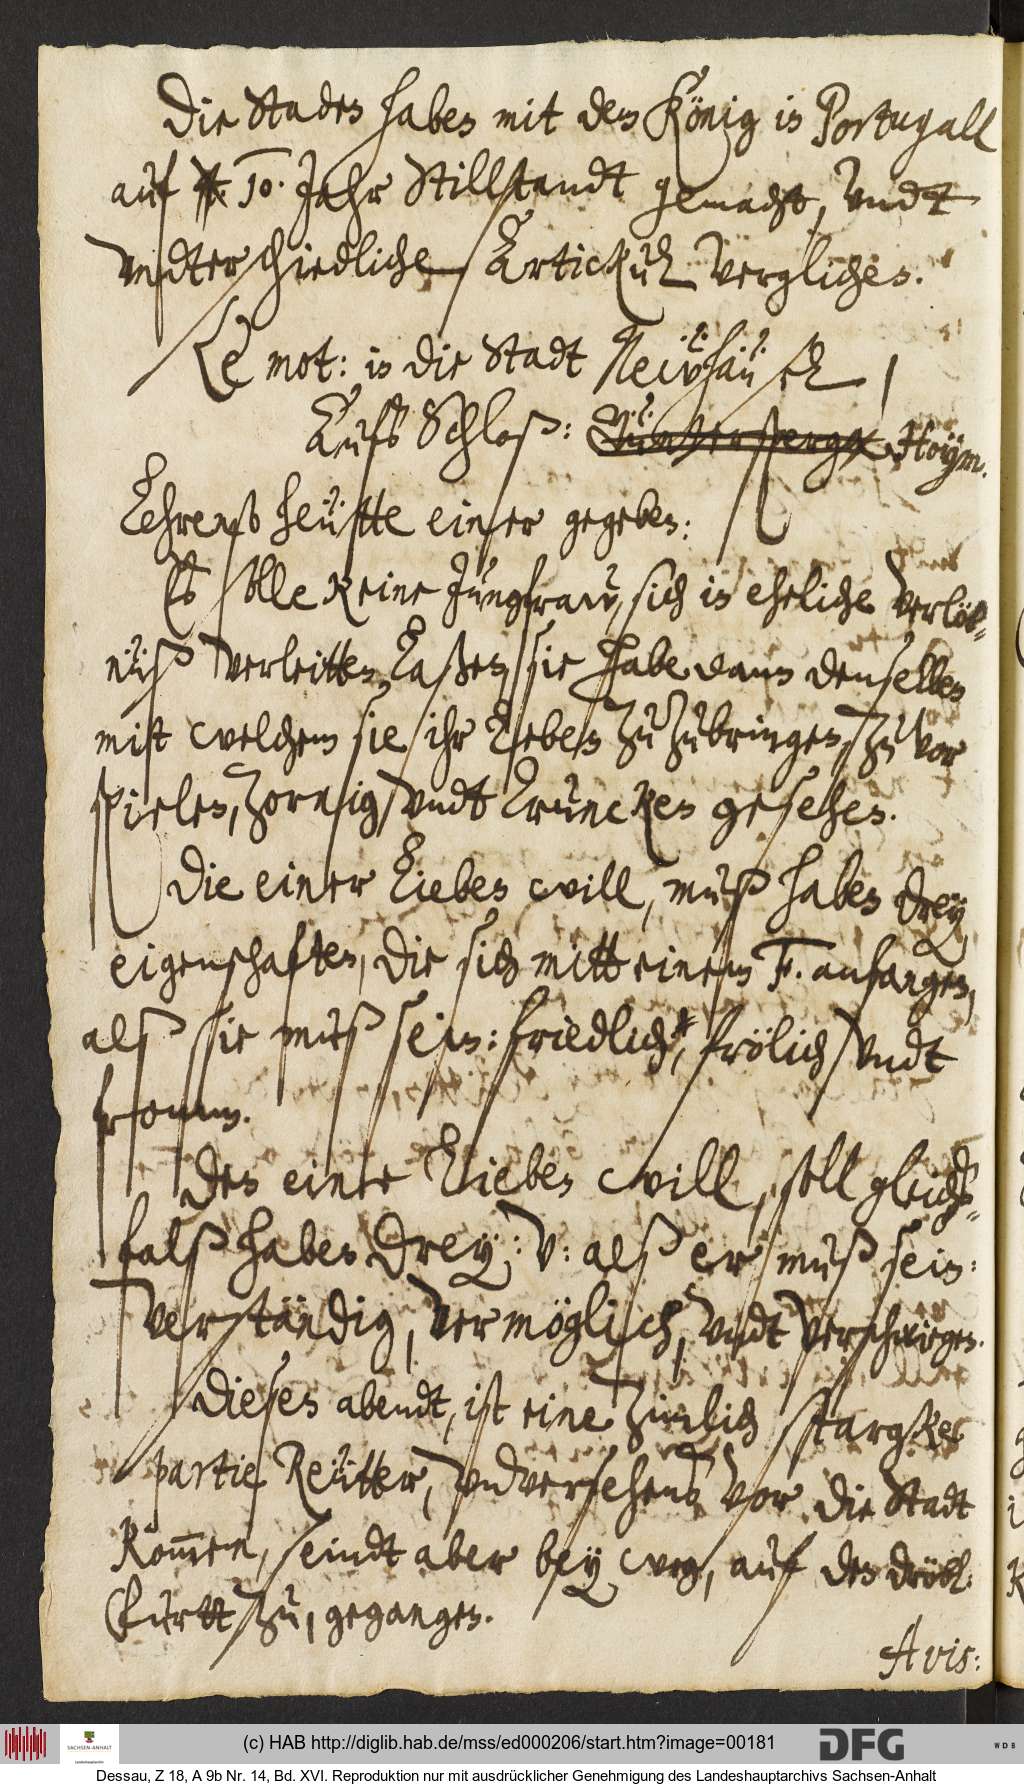 Die Staden haben mit dem König in Portugall
auf 10. Jahr Stillstandt gemacht, vndt
vndterschiedliche Artickul verglichen.
Le mot: in die Stadt Neuhäusel
Aufs Schloß: Hoÿm.
Lehrenß heütte einer gegeben:
Es solle keine Jungfraw, sich in eheliche verlöb-
nüß verleitten laßen, sie habe dann denselben
mitt welchem sie ihr Leben zuzubringen, zuvor
spielen, zornig, vndt truncken gesehen.
Die einer Lieben will, muß haben dreÿ
eigenschaften, die sich mitt einem F. anfangen,
alß sie muß sein: friedlich, frölich, vndt
fromm.
Den eine Lieben will, soll gleich-
falß haben dreÿ: V: alß er muß sein:
verständig, vermöglich, vndt verschwiegen.
Diesen abendt, ist eine zimlich stargke
partie Reütter, vnversehens vor die Stadt
kommen, seindt aber beÿ weg, auf den dröbl.
furtt zu, gegangen.
Avis:
(c) HAB http://diglib.hab.de/mss/ed000206/start.htm?image=00181
SACHSEN-ANHALT
DFG
WDB
Dessau, Z 18, A 9b Nr. 14, Bd. XVI. Reproduktion nur mit ausdrücklicher Genehmigung des Landeshauptarchivs Sachsen-Anhalt